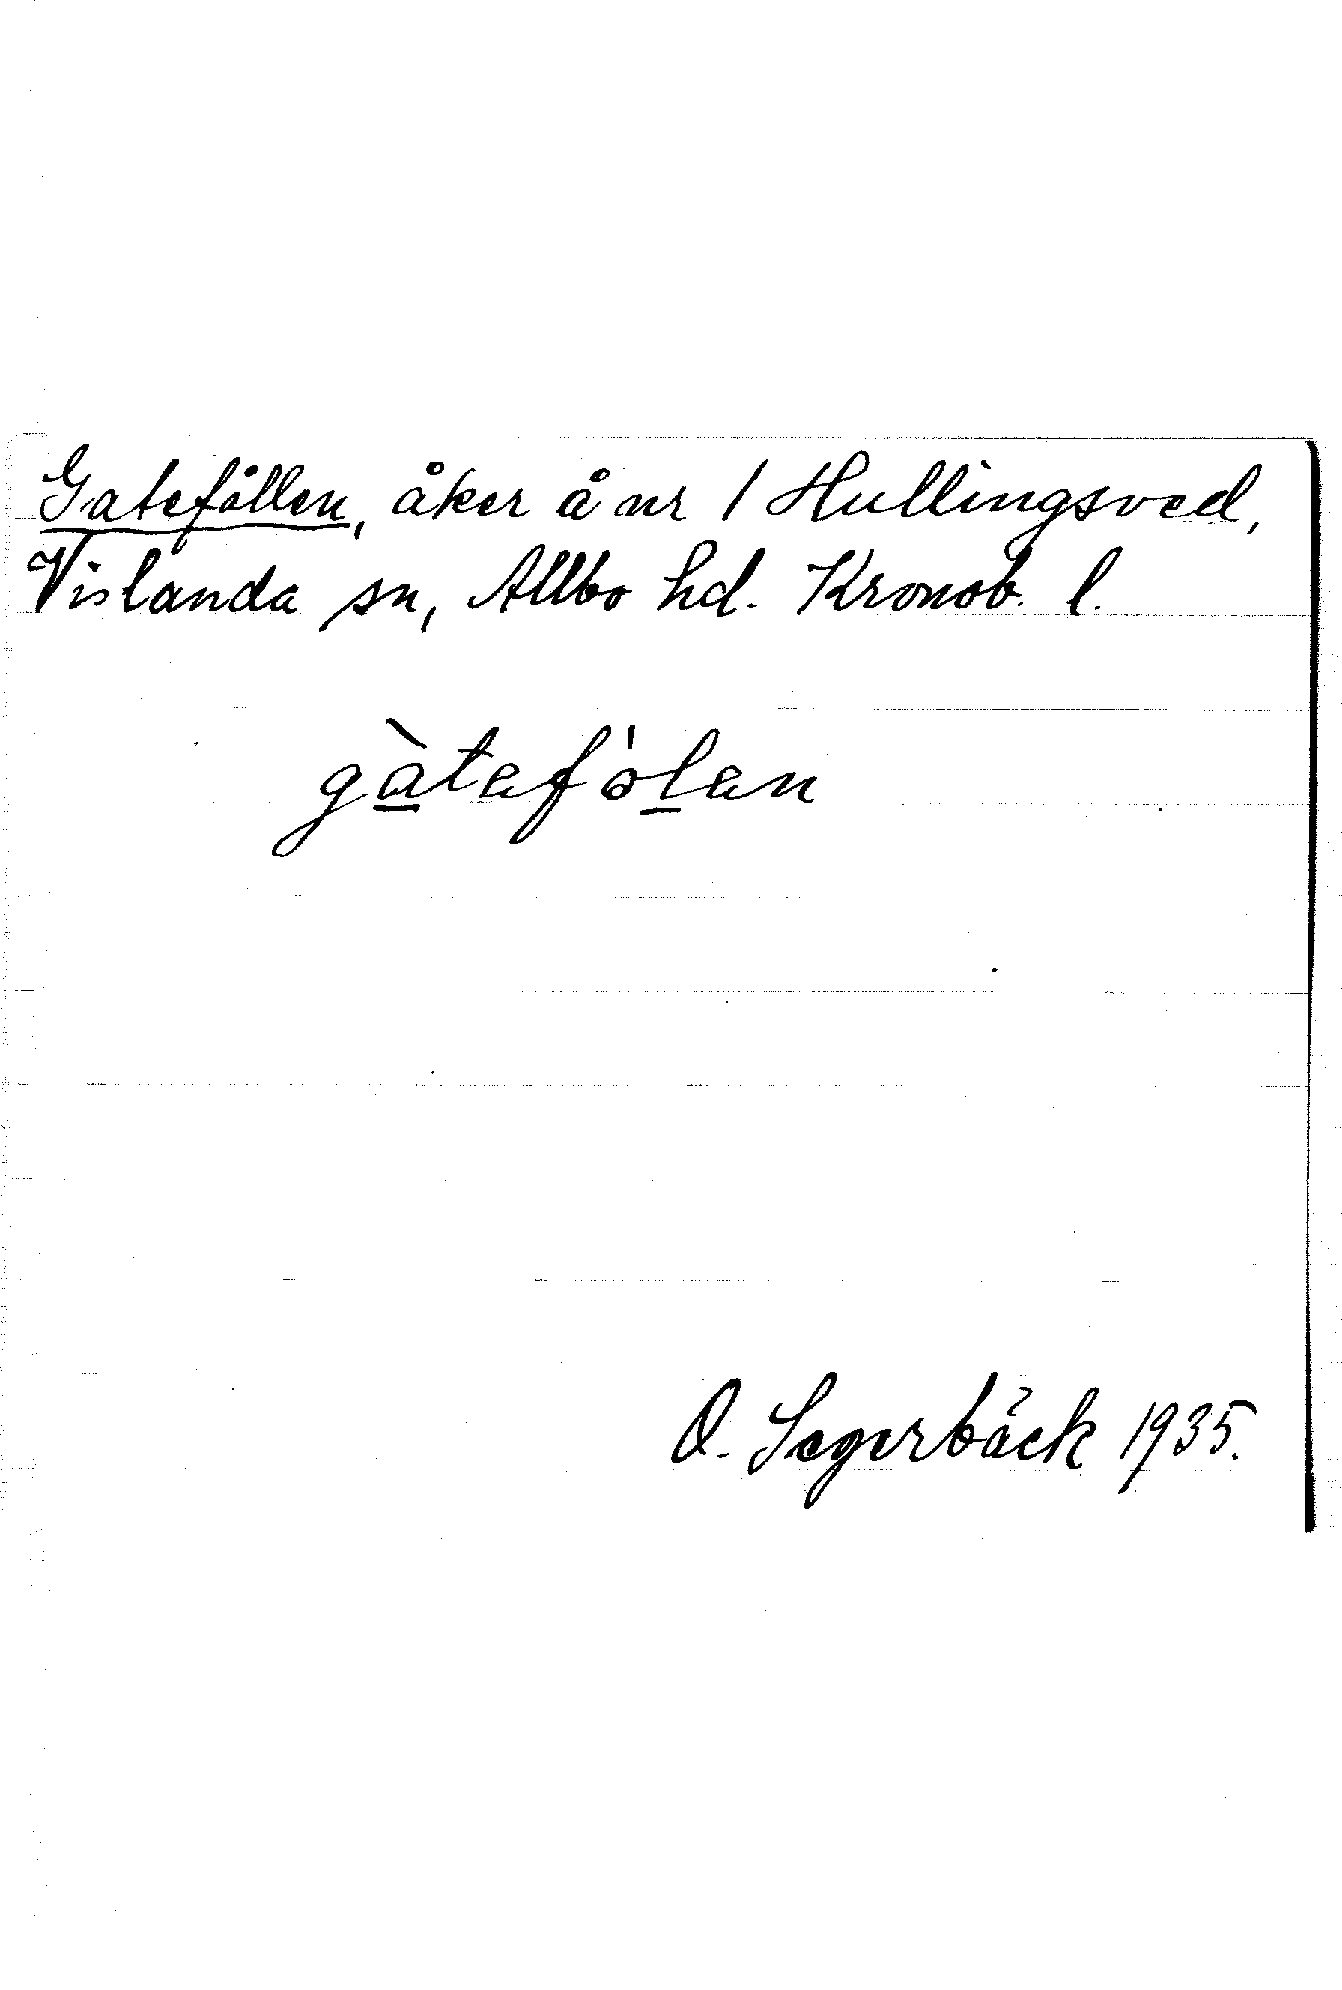 Gatefållen, åker å nr 1 Hullingsved,
Vislanda sn, Allbo hd. Kronob. l.
gàtafålan
O. Segerbäck 1935.